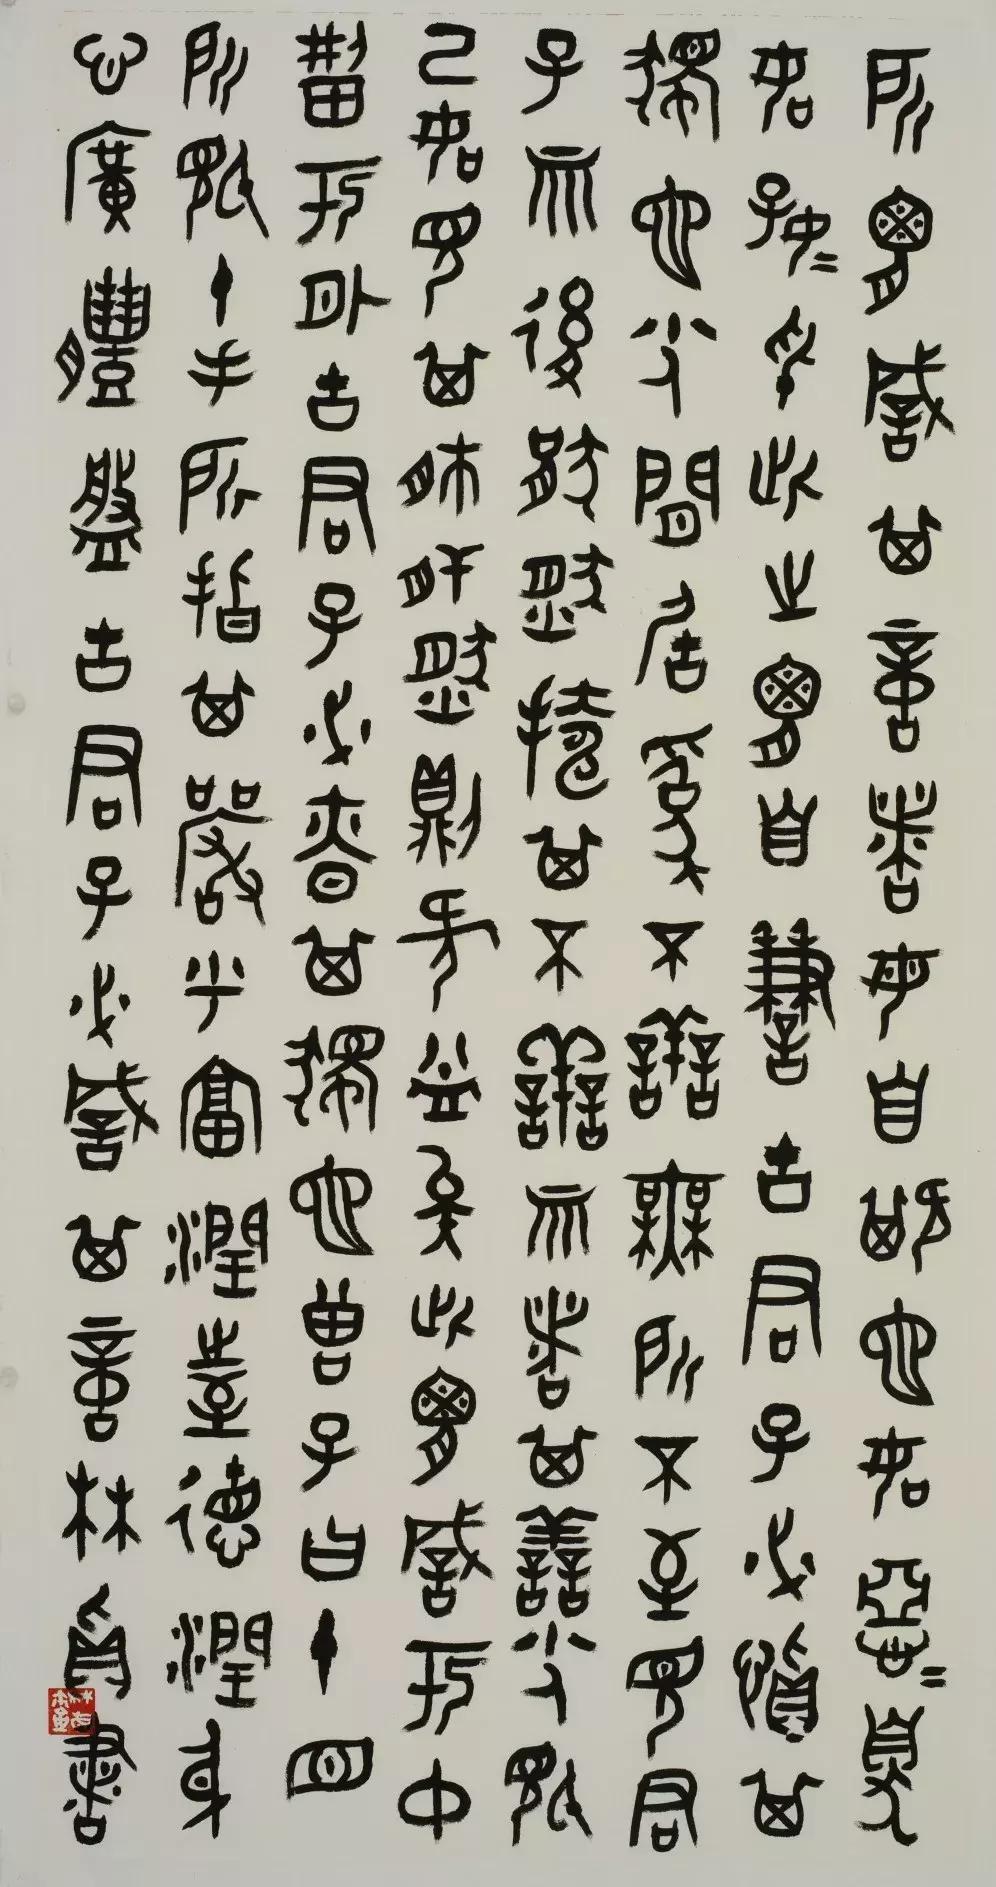 所謂誠其意者毋自欺也如惡=臭
如好=色此之謂自謙故君子必慎其
獨也小人閒居為不善無所不至見君
子而後厭然掩其不善而著其善小人視
己如見其肺肝然則何益矣此謂誠於中
型於外故君子必慎其獨也曾子曰十目
所視十手所指其嚴乎富潤屋德潤身
心廣體盤故君子必誠其意林為書